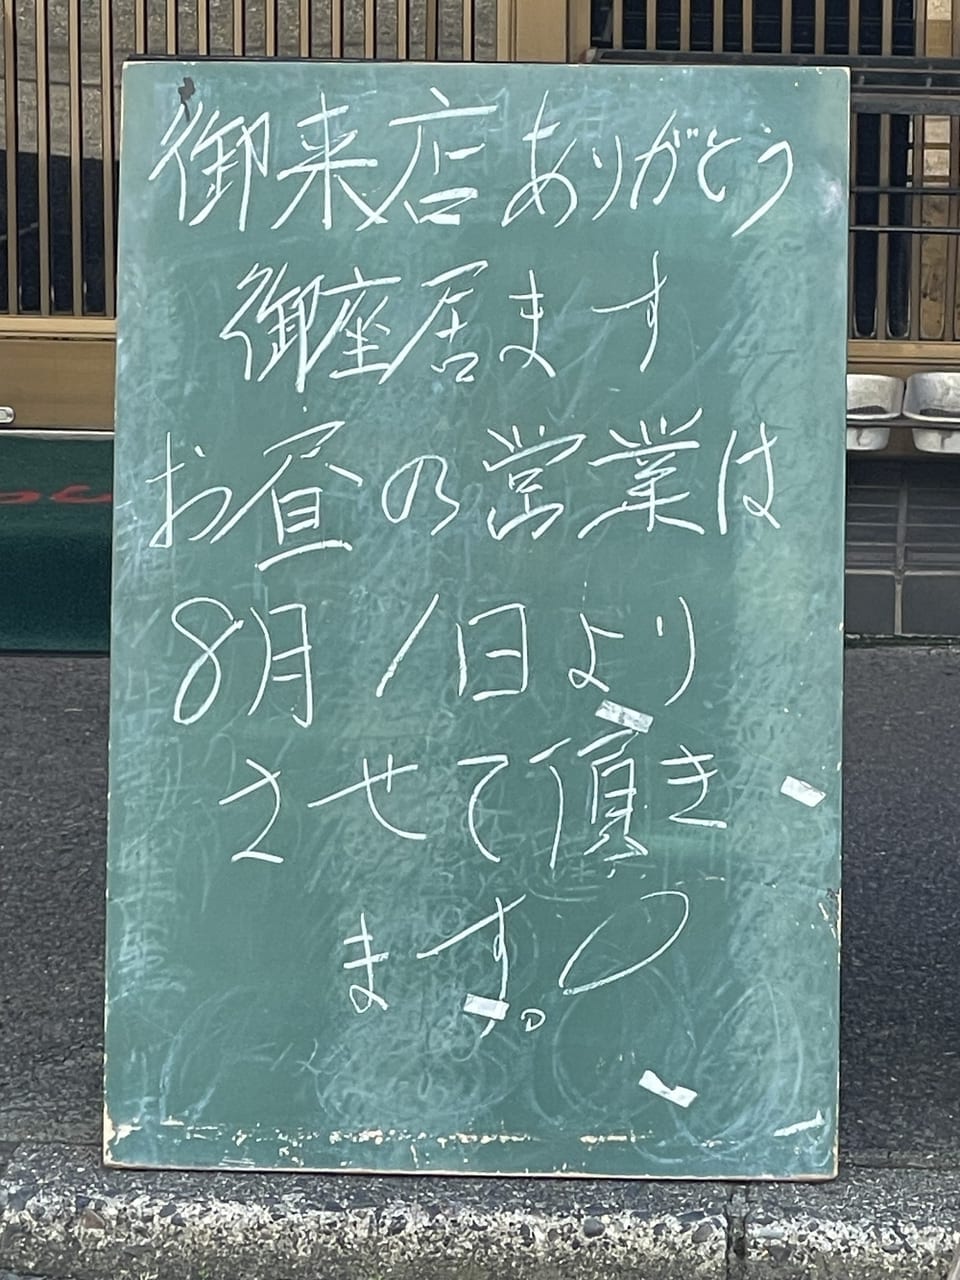 御来店ありがとう
御座居ます
お昼の営業は
8月1日より
させて頂き
ます。